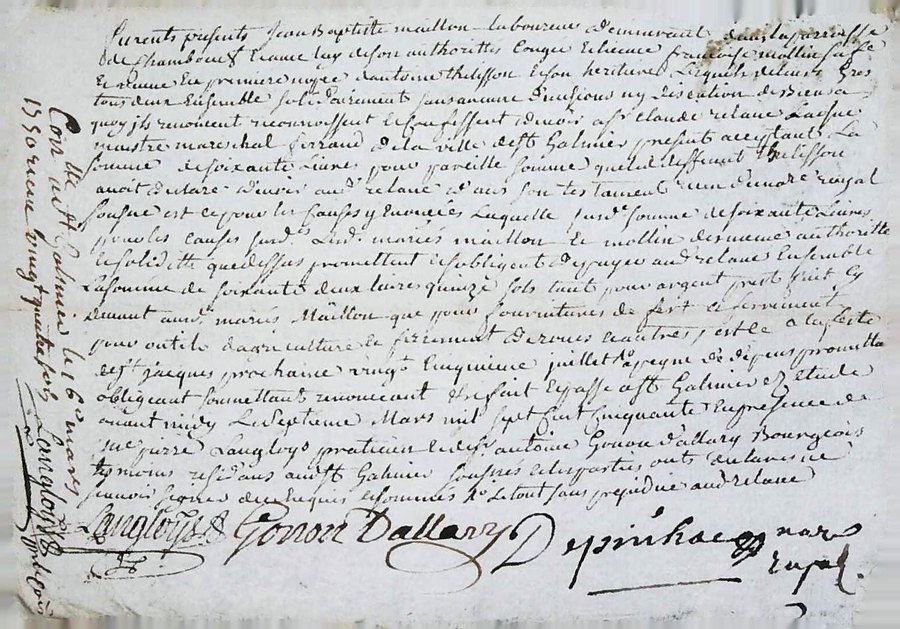 furent presents Jean Baptiste maillon laboureur d'emmurant dans la parroisse
de Chambœuf et avec luy de son authorittés Congée et licence françoise mollin sa fe
Et veuve En premiere nopce d'antoine thelisson et son heritiere Lesquels de leurs grés
tous deux Ensemble solidairement sans aucune Divisions ny discution de Biens a
quoy ils renoncent reconnoissent Et Confessent devoir a sr Claude relave
maistre marechal ferrand de la ville de st Galmier present acceptant La
somme de soixante Livres pour pareille somme que led deffunt thelisson
avoit declaré devoir aud relave dans son testament receu d'un nore royal
soussne est ce pour les Causes y Enoncées Laquelle surde somme de soixante Livres
pour les causes surds Lesds mariés maillon et mollin de mesme authoritte
et solidité que dessus promettent et s'obligent de payer aud relave Ensemble
La somme de soixante deux livres quinze sols tant pour argent presté Cy
devant auxds mariés Maillon que pour fournitures de fert et ferrement
pour outils d'agriculture et ferrement de roues et autres, est ce a la feste
de st jacques prochaine vingt Cinquieme juillet a peyne de depens promettant
obligeant soummettant renonceant et fait Et passé a st Galmier Et Etude
avant midy Le septieme Mars mil sept Cent Cinquante En presence de
me pierre Langloys praticien et de sr antoine Gonon d'allary Bourgeois
tesmoins residans aud st Galmier soussnes et les parties ont declaré ne
scavoir signer de ce Enquis et sommés Le tout sans prejudice aud relave
Langloys Gonon Dallary Depinhac nore
royal
Conlle a st Galmier le 16e mars
1750 receu vingt quatre sols Langloys